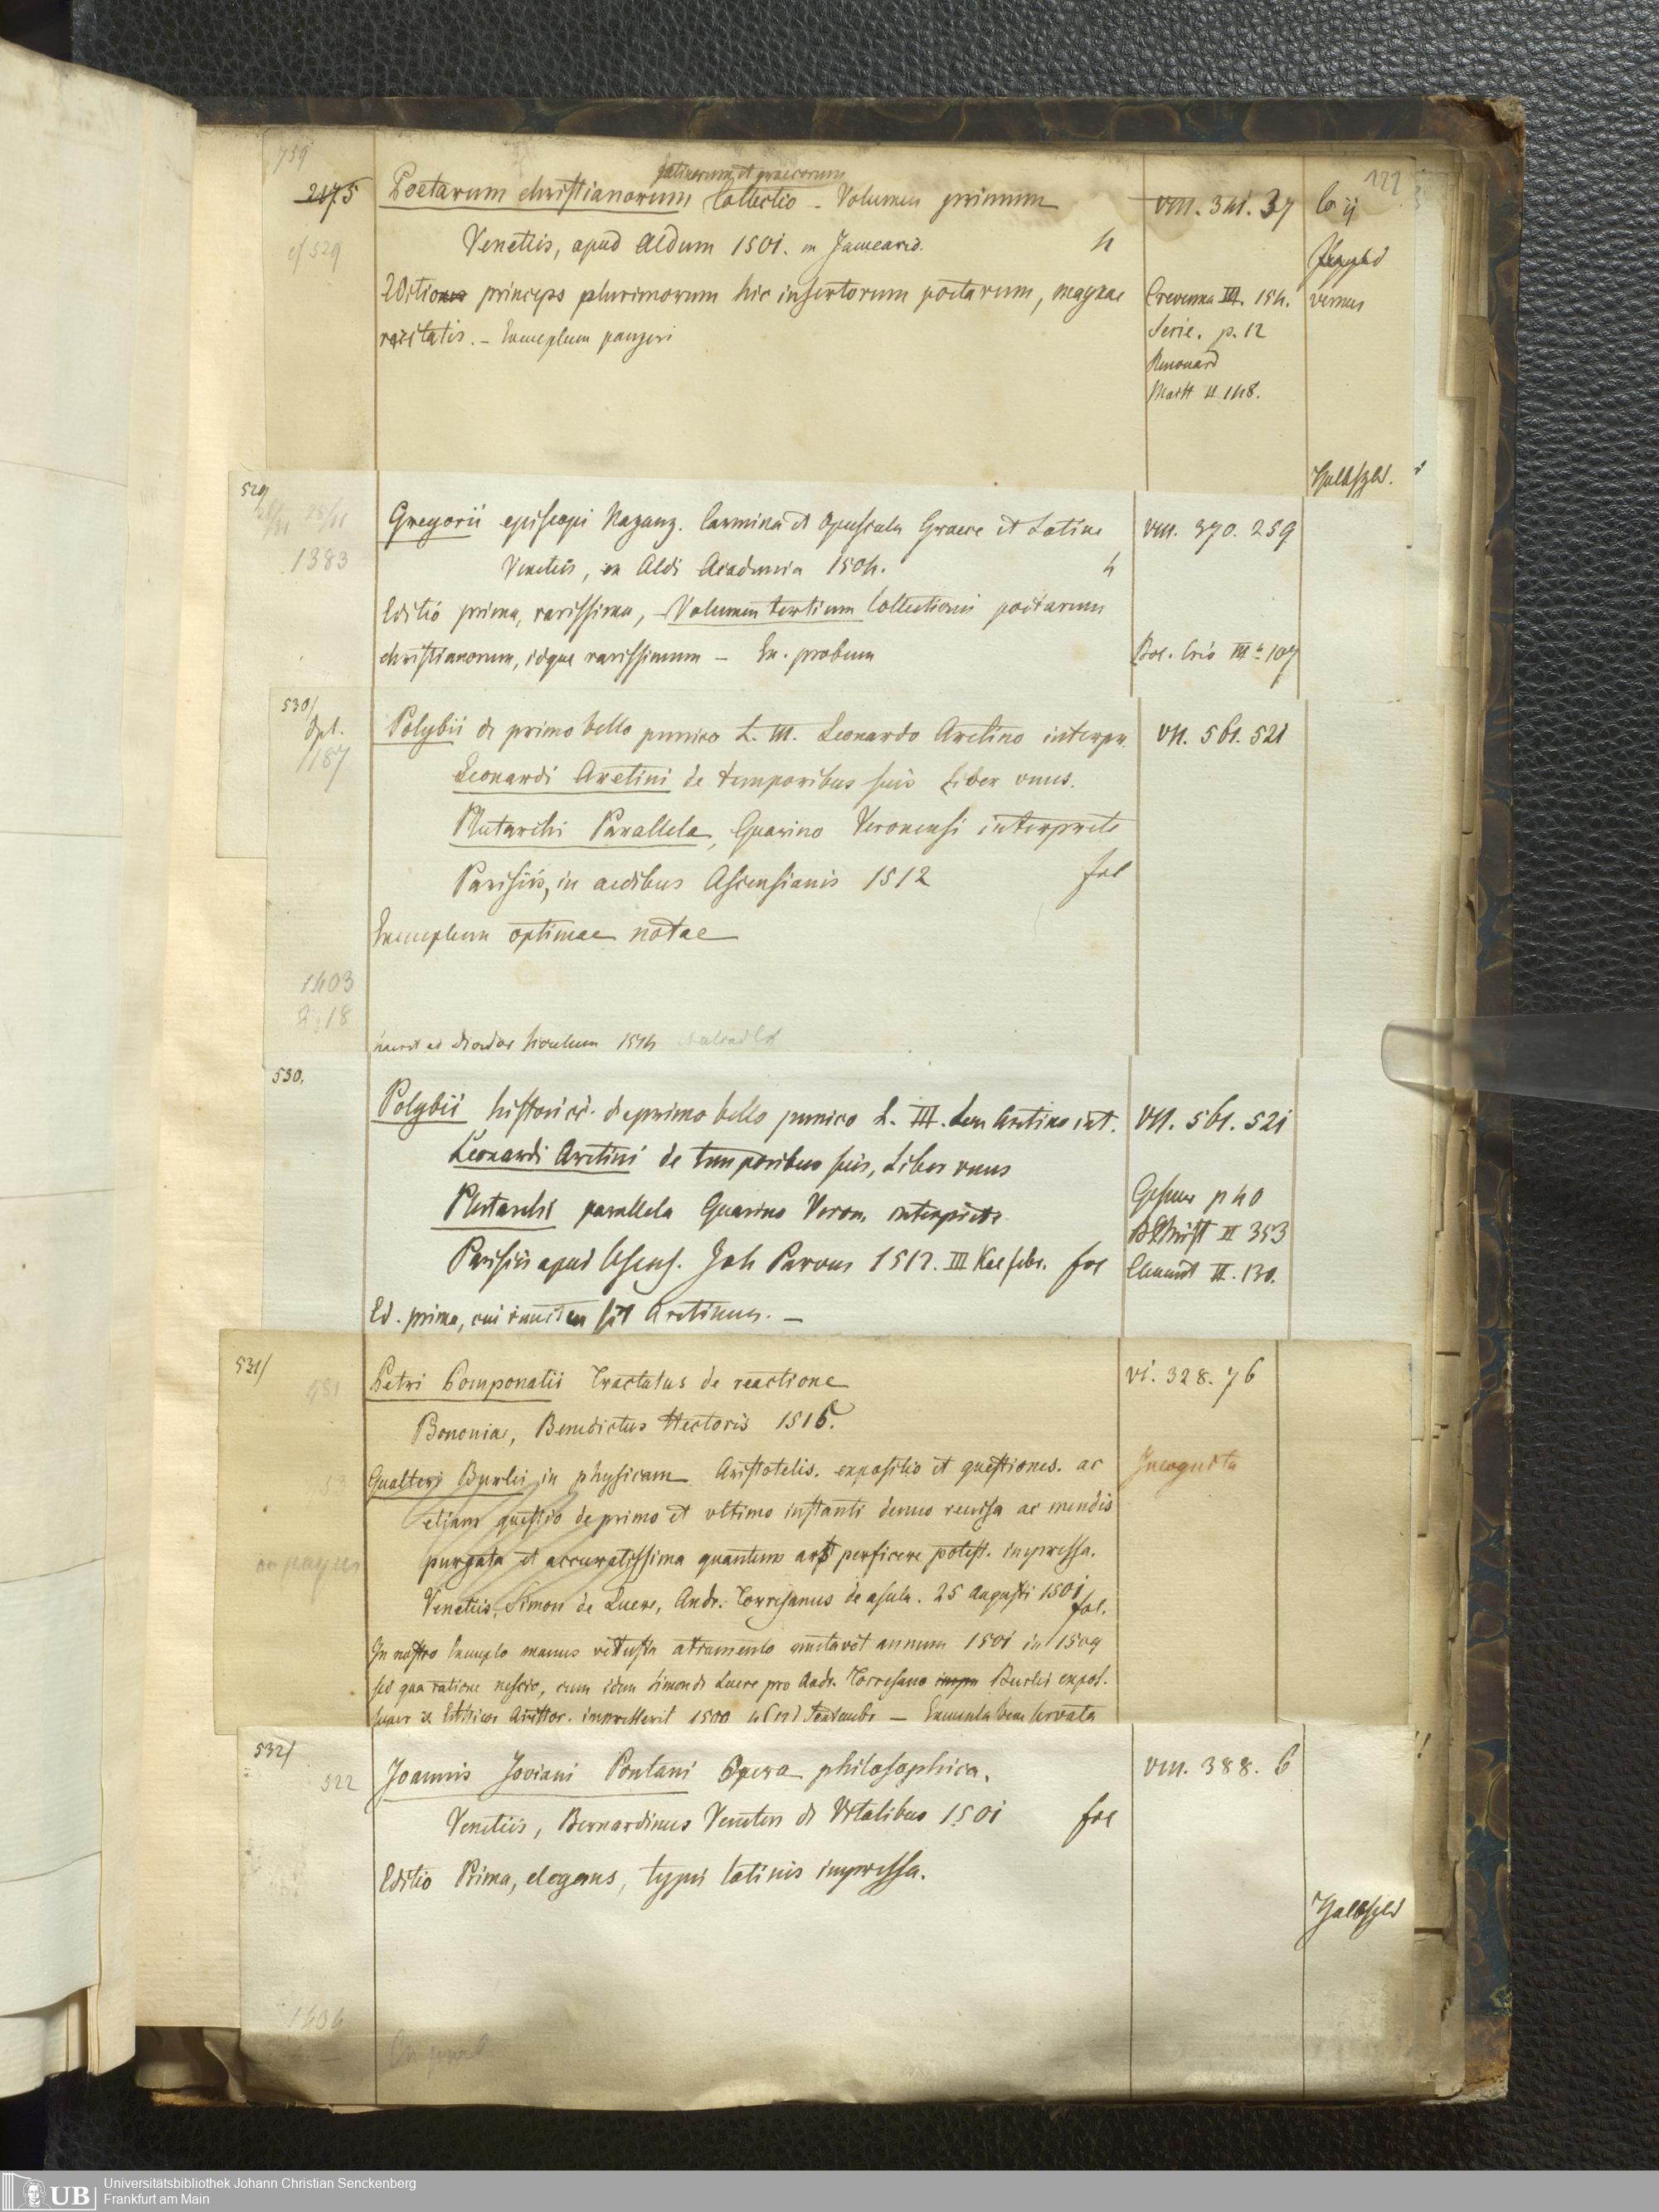 122
759
2175
latinorum et graecorum
Poetarum christianorum Collectio - Volumen primum
VIII. 341. 37
Co ij
cf 529
Venetiis, apud Aldum 1501. m Januario.
4
Editio princeps plurimorum hic insertorum poetarum, magnae
Crevenna III. 154.
raritatis. - Exemplum panzeri
Serie. p. 12
Renouard
Maitt II 148.
Halbfzbd.
529/
1383
Gregorii episcopi Nazanz. Carmina et Opuscula Graece et Latine
VIII. 370. 259
Venetiis, ex Aldi Academia 1504.
4
Editio prima, rarissima, - Volumen tertium Collectionis poetarum
christianorum, idque rarissimum - Ex. probum
530/
Dpl.
1187
Polybii de primo bello punico L. III. Leonardo Aretino interpr.
VII. 561. 521
Leonardi Aretini de temporibus suis Liber vnus.
Plutarchi Parallela, Guarino Veronensi interprete
Parisiis, in aedibus Ascensianis 1512
fol
Exemplum optimae notae
1403
530.
Polybii historici de primo bello punico L. III. Leon Aretino int.
VII. 561. 521
Leonardi Aretini de temporibus suis, Liber vnus
Plutarchi parallela Guarino Veron. interprete
Gesner p 40
Parisiis apud Ascens. Joh Parvus 1512. III Kal febr. fol
II 353
Clement II. 130.
Ed. prima, cui sit Aretinus. -
531/
481
Petri Pomponatii Tractatus de reactione
VI. 328. 76
Bononiae, Benedictus Hectoris 1515.
Gualteri Burlei in physicam Aristotelis. expositio et questiones. ac
Incognita
etiam questio de primo et vltimo instanti denuo reuisa ac mendis
purgata et accuratissima quantum ars perficere potest. impressa.
Venetiis, Simon de Luere, Andr. Torresanus de asula. 25 Augusti 1501
fol.
In nostro Exemplo manus vetusta atramento mutavit annum 1501 in 1509
sed qua ratione nescio, cum idem Simon de Luere pro Andr. Torresano Burlei expos.
super Aristot. impresserit 1500 Septembr - Exempla bene servata
532/
522
Joannis Joviani Pontani Opera philosophica.
VIII. 388. 6
Venetiis, Bernardinus Venetus de Vitalibus 1501
fol
Editio Prima, elegans, typis latinis impressa.
Halbfzbd
1404
UB
Universitätsbibliothek Johann Christian Senckenberg
Frankfurt am Main